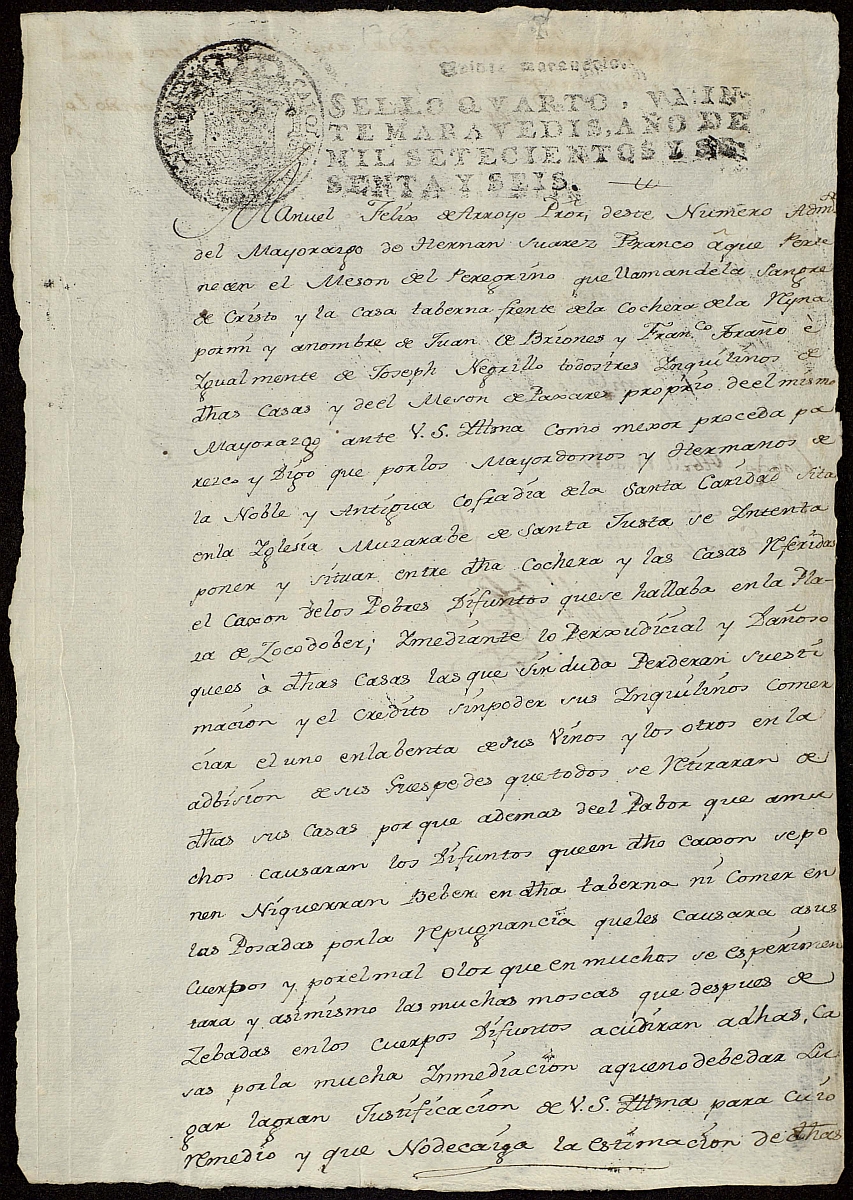 Veinte maravedis.
SELLO QVARTO, VEIN-
TE MARAVEDIS, AÑO DE
MIL SETECIENTOS Y SE-
SENTA Y SEIS.
Manuel Felix de Arroyo Pror, deste Numero Admor
del Mayorazgo de Hernan Suarez Franco âque Perte
necen el Meson del Peregrino que llaman de la Sangre
de Cristo y la Casa taberna frente de la Cochera de la Reyna
por mi y anombre de Juan de Briones y Franco Araño è
Igualmente de Joseph Negrillo todos tres Inquilinos de
dhas Casas y de el Meson de Paxares proprio de el mismo
Mayorazgo ante V. S. Illma Como mexor proceda pa
rezco y Digo que por los Mayordomos y Hermanos de
la Noble y Antigua Cofradia de la Santa Caridad sita
en la Iglesia Muzarabe de Santa Justa se Intenta
poner y situar entre dha Cochera y las Casas Referidas
el Caxon de los Pobres Difuntos que se hallaba en la Pla-
za de Zocodober; Imediante lo Perxudicial y Dañoso
que es à dhas Casas las que sin duda Perderan su esti
macion y el Credito sin poder sus Inquilinos Comer
ciar el uno en la benta de sus Vinos y los otros en la
adbision de sus Guespedes que todos se Retiraran de
dhas sus Casas por que ademas de el Pabor que amu
chos causaran los Difuntos que en dho caxon se po
nen Ni querran Beber en dha taberna ni Comer en
las Posadas por la Repugnancia que les Causara asus
Cuerpos y por el mal olor que en muchos se esperimen
tara y asimismo las muchas moscas que despues de
Zebadas en los Cuerpos Difuntos acudiran adhas, Ca
sas por la mucha Inmediacion aque no debe dar Lu
gar la gran Justificacion de V. S. Illma para Cuio
remedio y que No decaiga la estimacion de dhas